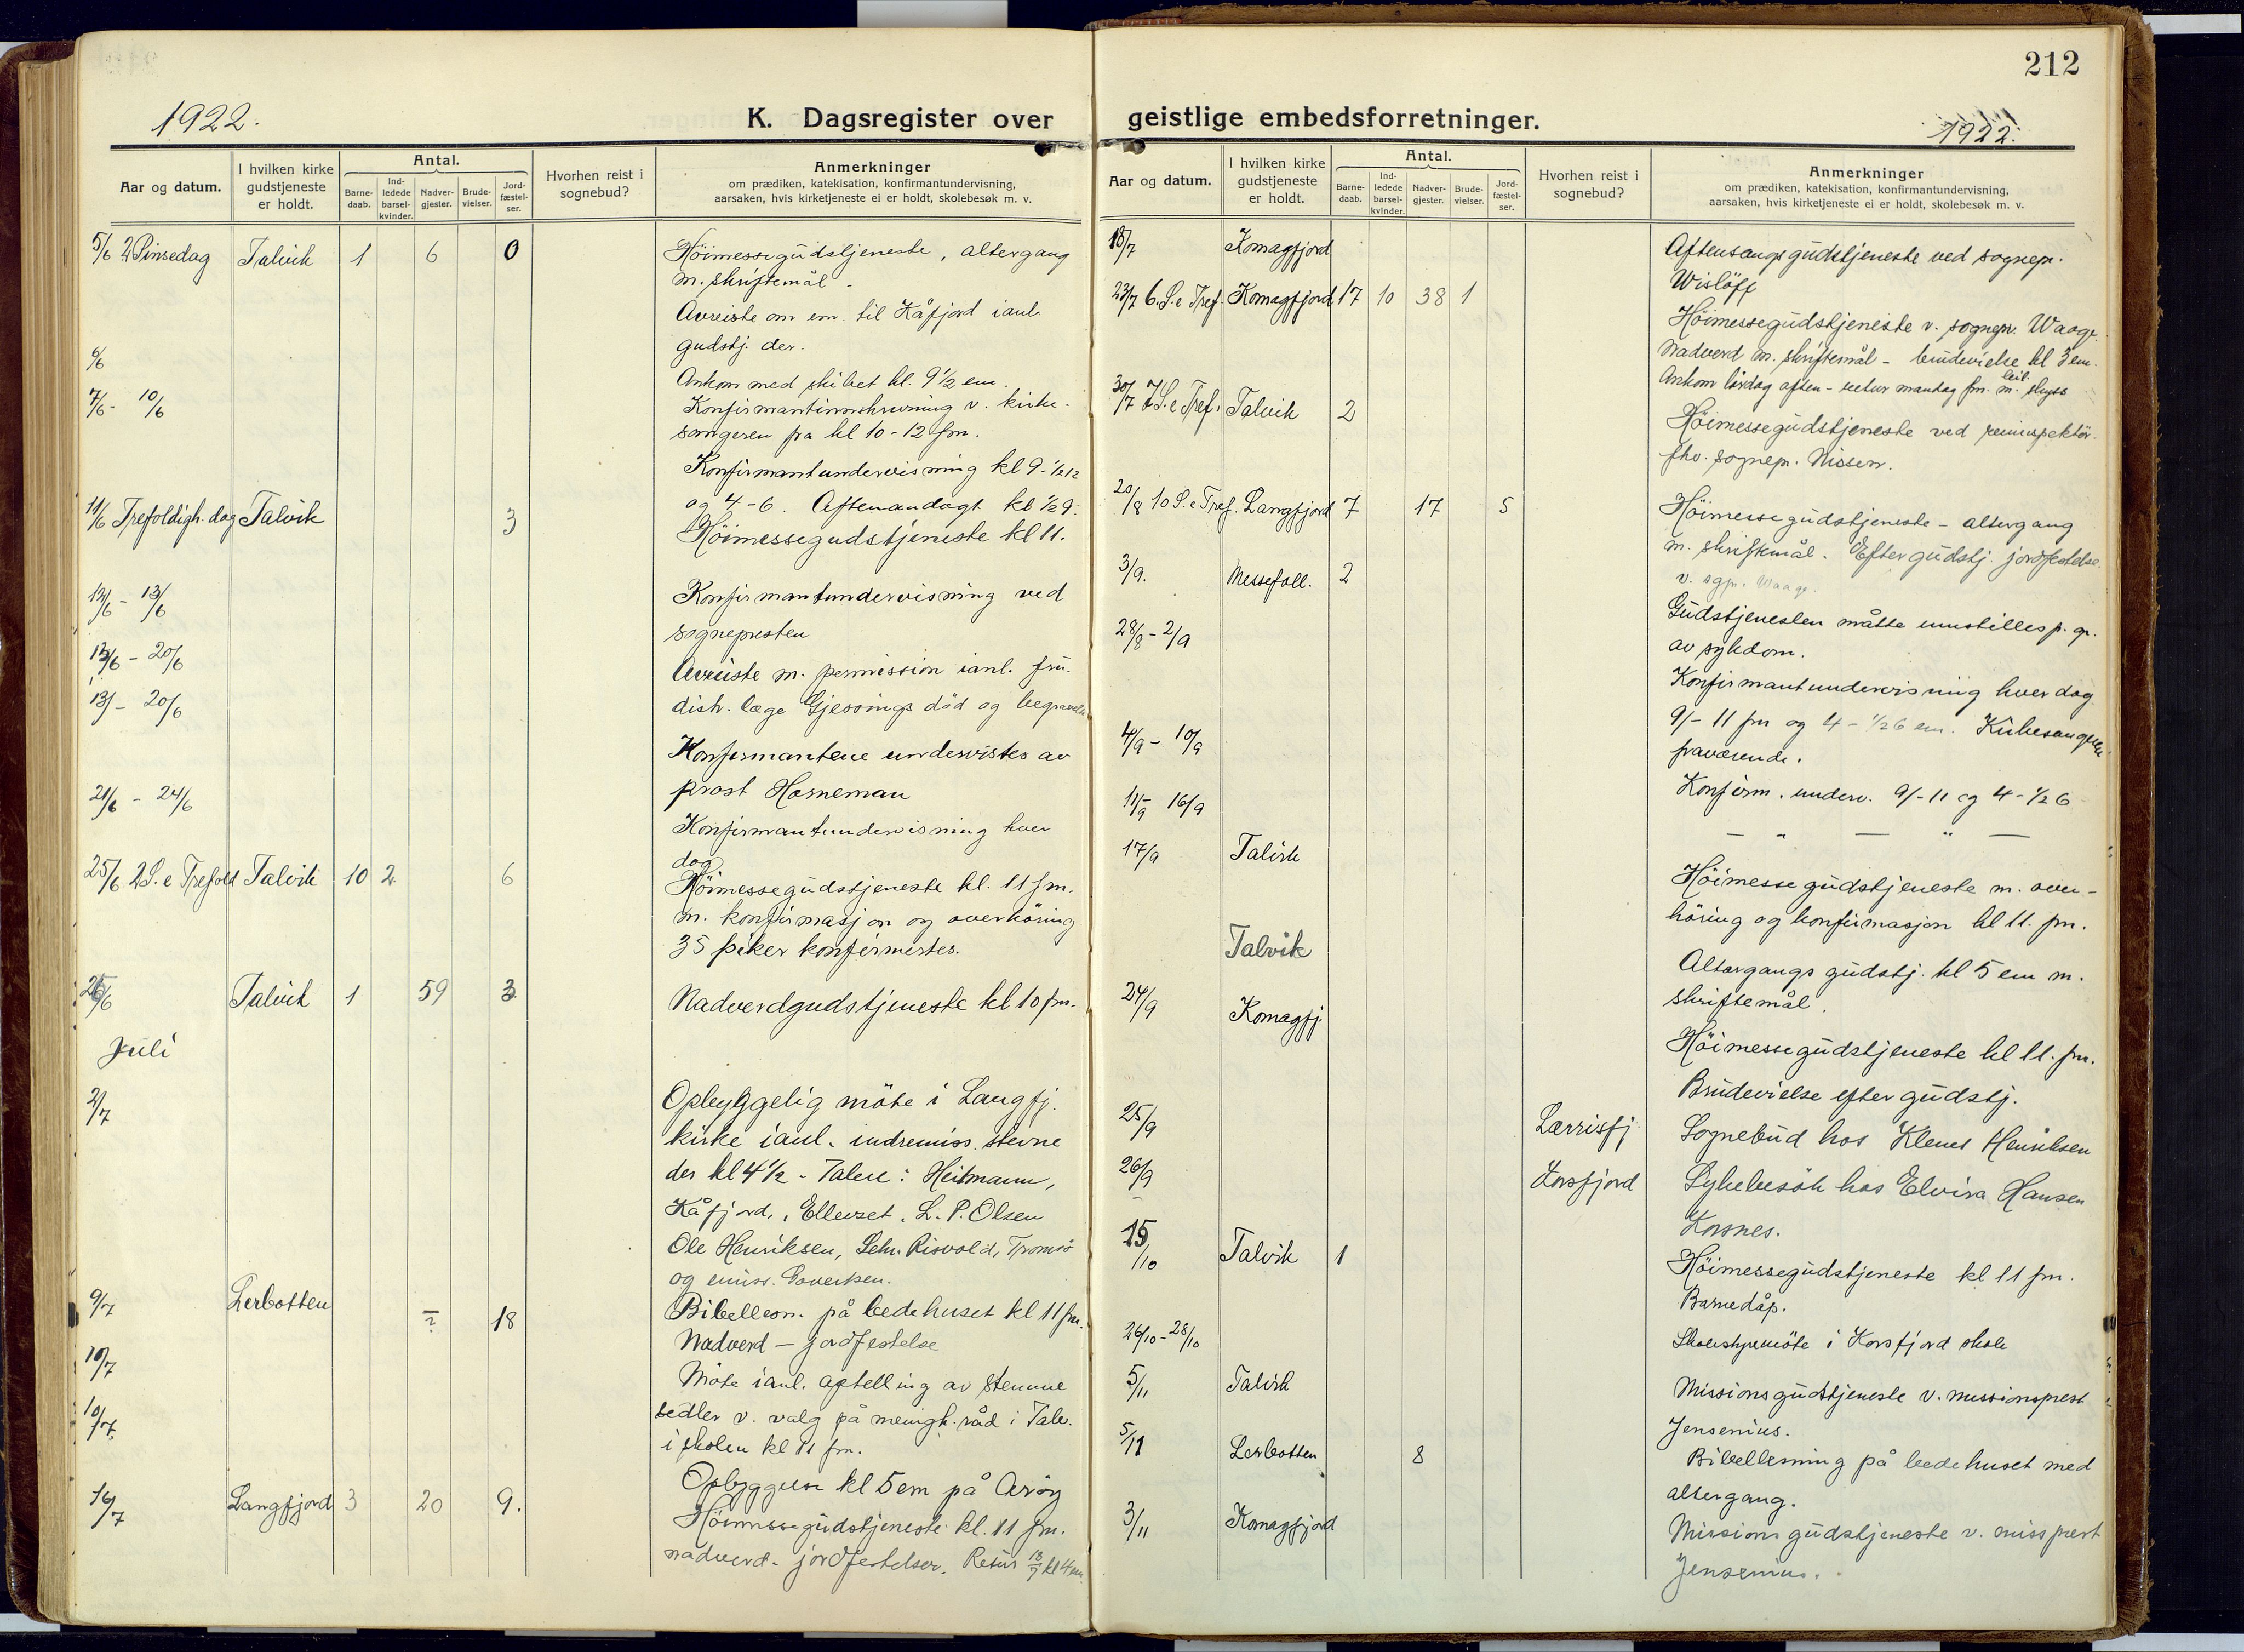 1922.
K. Dagsregister over
Aar og datum.
I hvilken kirke gudstjeneste er holdt.
Antal.
Barne-daab.
Ind-ledede barsel-kvinder.
Nadver-gjester.
Brude-vielser.
Jord-fæstel-ser.
Hvorhen reist i sognebud?
Anmerkninger
om prædiken, katekisation, konfirmantundervisning,
aarsaken, hvis kirketjeneste ei er holdt, skolebesøk m. v.
5/6 2 Pinsedag Talvik 1 6 0 Höimessegudstjeneste, altergang
m. skriftemål.
Avreiste om em. til Kåfjord ianl.
gudstj. der.
6/6 Ankom med skibet kl. 9 1/2 em.
7/6 - 10/6 Konfirmantinnskrivning v. kirke-
sangeren fra kl 10-12 fm.
Konfirmantundervisning kl 9-1/2 12
og 4-6. Aftenandagt kl 1/2 9.
11/6 Trefoldigh. dag Talvik 3 Höimessegudstjeneste kl 11.
12/6 - 13/6 Konfirmantundervisning ved
sognepresten
13/6 - 20/6 Avreiste m. permission ianl. fru
distr. læge Gjessings död og begravelse
13/ - 20/6 Konfirmantene undervistes av
prost Horneman
21/6 - 24/6 Konfirmantundervisning hver
dag
25/6 2 S. e Trefold Talvik 10 2 6 Höimessegudstjeneste kl. 11 fm.
m. konfirmasjon og overhöring
35 piker konfirmertes.
26/6 Talvik 1 59 3 Nadverdgudstjeneste kl 10 fm.
Juli
2/7 Opbyggelig möte i Langfj.
kirke ianl. indremiss. stevne
der kl 4 1/2 - Talere: Heitmann,
Kåfjord, Ellevset, L. P. Olsen
Ole Henriksen, Risvold, Tromsö
og emiss.
9/7 Lerbotten ? 18 Bibellesn. på bedehuset kl 11 fm.
Nadverd - jordfestelse
10/7 Möte ianl. optelling av stemme
10/7 sedler v. valg på menigh. råd i Talv.
i skolen kl 11 fm.
Opbyggelse kl 5 em på Aröy
16/7 Langfjord 3 20 9. Höimessegudstjeneste kl. 11 fm.
nadverd - jordfestelser. Retur 18/7 kl 4 em.
212
geistlige embedsforretninger.
1922.
Aar og datum.
I hvilken kirke gudstjeneste er holdt.
Antal.
Barne-daab.
Ind-ledede barsel-kvinder.
Nadver-gjester.
Brude-vielser.
Jord-fæstel-ser.
Hvorhen reist i sognebud?
Anmerkninger
om prædiken, katekisation, konfirmantundervisning,
aarsaken, hvis kirketjeneste ei er holdt, skolebesøk m. v.
18/7 Komagfjord Aftensangsgudstjeneste ved sognepr.
Wislöff
23/7 6. S. e Tref. Komagfjord 17 10 38 1 Höimessegudstjeneste v. sognepr. Waage.
Nadverd m. skriftemål - brudevielse kl 3 em.
Ankom lördag aften - retur mandag fm. m. leil. skyss
30/7 7 S. e Tref. Talvik 2 Höimessegudstjeneste ved
fhv. sognepr. Nissen.
20/8 10 S. e Tref. Langfjord 7 17 5 Höimessegudstjeneste - altergang
m. skriftemål. Efter gudstj. jordfestelse
v. sgpr. Waage.
3/9. Messefall. 2 Gudstjenesten måtte innstilles p. gr.
av sykdom.
28/8 - 2/9 Konfirmantundervisning hver dag
9/- 11 fm og 4 - 1/2 6 em. Kirkesangeren
fraværende.
4/9 - 10/9 Konfirm. underv. 9/- 11 og 4 - 1/2 6
11/9 - 16/9 — " — " —
17/9 Talvik Höimessegudstjeneste m. over-
höring og konfirmasjon kl 11. fm.
Talvik Altergangsgudstj. kl 5 em m.
skriftemål.
24/9 Komagfj. Höimessegudstjeneste kl 11. fm.
Brudevielse efter gudstj.
25/9 Lærrisfj. Sognebud hos Klemet Henriksen
26/9 Korsfjord Sykebesök hos Elvira Hansen
Korsnes.
15/10 Talvik 1 Höimessegudstjeneste kl 11 fm.
Barnedåp.
26/10 - 28/10 Skolestyremöte i Korsfjord skole
5/11 Talvik Missionsgudstjeneste v. missionsprest
Jensenius.
5/11 Lerbotten 8 Bibellesning på bedehuset med
altergang.
3/11 Komagfjord Missionsgudstjeneste v. missprest
Jensenius.